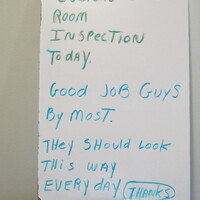 ROOM
INSPECTION
TODAY.
GOOD JOB GUYS
BY MOST.
THEY SHOULD LOOK
THIS WAY
EVERY DAY THANKS